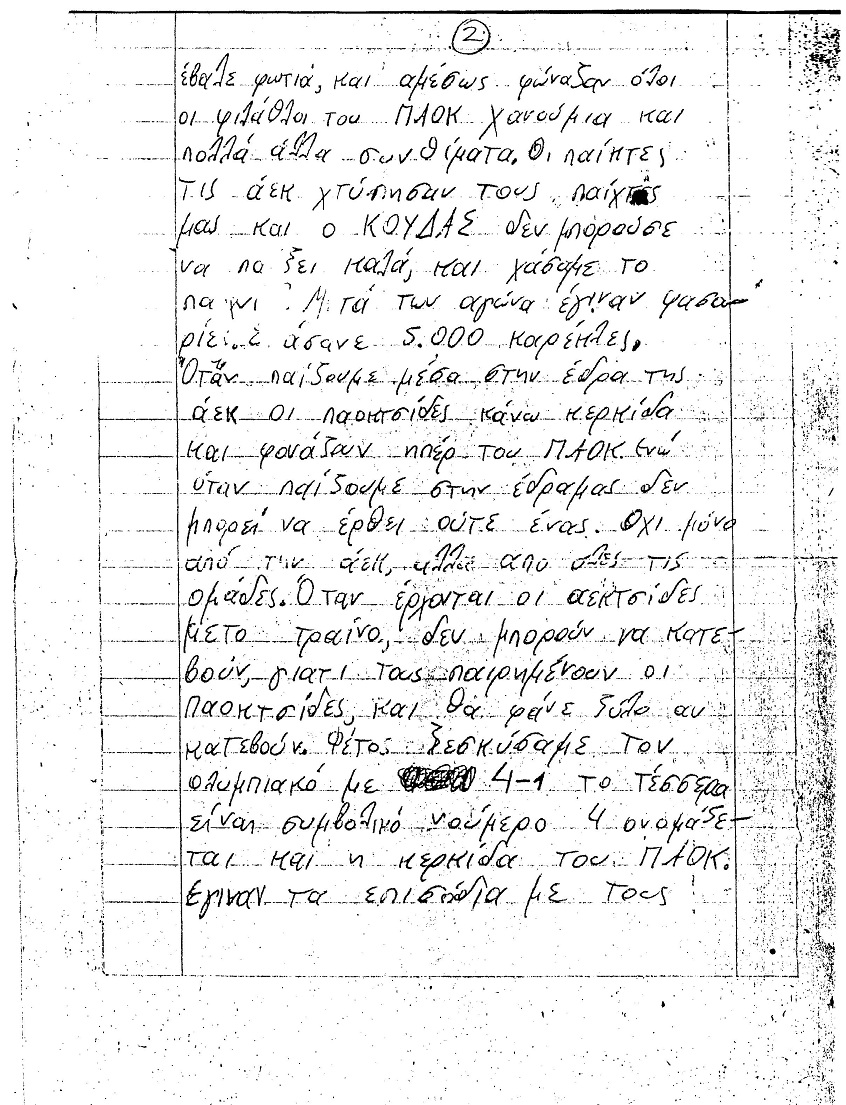 2
έβαλε φωτιά, και αμέσως φώναξαν όλοι
οι φιλάθλοι του ΠΑΟΚ χανούμια και
πολλά άλλα συνθίματα. Οι παίκτες
τις άεκ χτύπησαν τους παίχτες
μας και ο ΚΟΥΔΑΣ δεν μπορούσε
να πα ξει καλά, και χάσαμε το
τον αγώνα έγιναν φασα-
άσανε 5.000 καρέκλες.
Όταν παίζουμε μέσα στην έδρα της
άεκ οι παοκτσίδες κάνω κερκίδα
και φονάζουν ηπέρ του ΠΑΟΚ. Ενώ
όταν παίζουμε στην έδραμας δεν
μπορεί να έρθει ούτε ένας. Οχι μόνο
από την άεκ, αλλα απο ολες τις
ομάδες. Όταν έρχονται οι αεκτσίδες
μετο τραίνο, δεν μπορούν να κατε-
βούν, γιατι τους παιριμένουν οι
Παοκτσίδες, και θα φάνε ξύλο αν
κατεβούν. Φέτος ξεσκύσαμε τον
ολυμπιακό με 4-1 το τέσσερα
είναι συμβολικό νούμερο 4 ονομάζε-
ται και η κερκίδα του ΠΑΟΚ.
Εγιναν τα επισόδια με τους